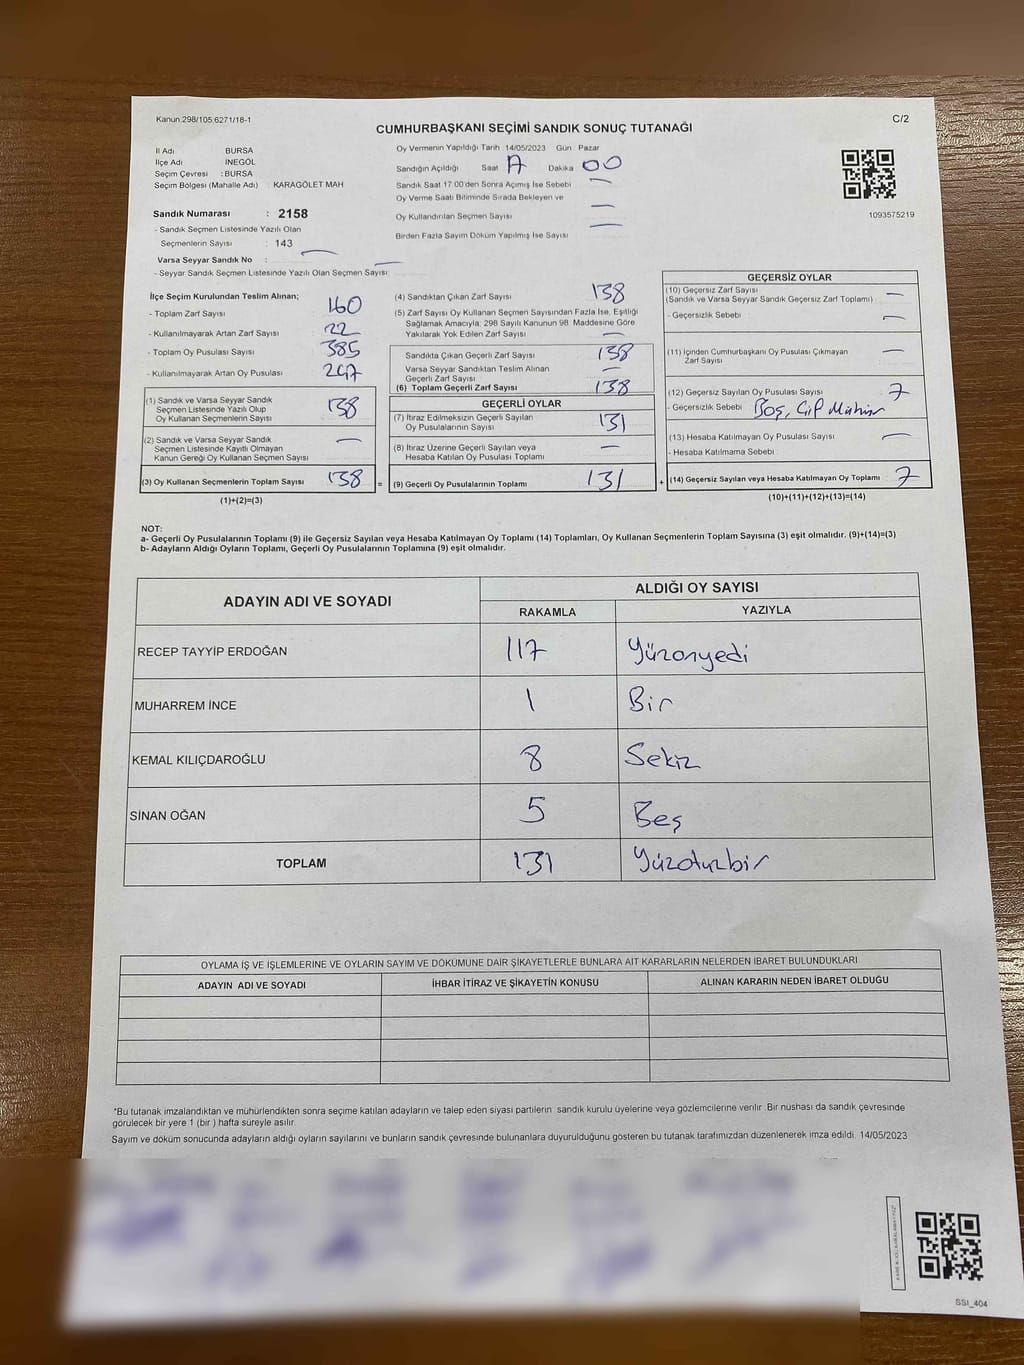 Kanun:298/105;6271/18-1
C/2
CUMHURBAŞKANI SEÇİMİ SANDIK SONUÇ TUTANAĞI
İl Adı BURSA
İlçe Adı İNEGÖL
Seçim Çevresi : BURSA
Seçim Bölgesi (Mahalle Adı) : KARAGÖLET MAH
Sandık Numarası : 2158
- Sandık Seçmen Listesinde Yazılı Olan
Seçmenlerin Sayısı : 143
Varsa Seyyar Sandık No :
- Seyyar Sandık Seçmen Listesinde Yazılı Olan Seçmen Sayısı:
Oy Vermenin Yapıldığı Tarih :14/05/2023 Gün : Pazar
Sandığın Açıldığı Saat 17 Dakika 00
Sandık Saat 17:00'den Sonra Açılmış İse Sebebi
Oy Verme Saati Bitiminde Sırada Bekleyen ve
Oy Kullandırılan Seçmen Sayısı
Birden Fazla Sayım Döküm Yapılmış İse Sayısı
1093575219
İlçe Seçim Kurulundan Teslim Alınan;
- Toplam Zarf Sayısı : 160
- Kullanılmayarak Artan Zarf Sayısı : 22
- Toplam Oy Pusulası Sayısı : 385
- Kullanılmayarak Artan Oy Pusulası : 247
(1) Sandık ve Varsa Seyyar Sandık
Seçmen Listesinde Yazılı Olup
Oy Kullanan Seçmenlerin Sayısı 138
(2) Sandık ve Varsa Seyyar Sandık
Seçmen Listesinde Kayıtlı Olmayan
Kanun Gereği Oy Kullanan Seçmen Sayısı —
(3) Oy Kullanan Seçmenlerin Toplam Sayısı 138 =
(1)+(2)=(3)
(4) Sandıktan Çıkan Zarf Sayısı : 138
(5) Zarf Sayısı Oy Kullanan Seçmen Sayısından Fazla İse, Eşitliği
Sağlamak Amacıyla; 298 Sayılı Kanunun 98. Maddesine Göre
Yakılarak Yok Edilen Zarf Sayısı : —
Sandıkta Çıkan Geçerli Zarf Sayısı : 138
Varsa Seyyar Sandıktan Teslim Alınan
Geçerli Zarf Sayısı : —
(6) Toplam Geçerli Zarf Sayısı : 138
GEÇERLİ OYLAR
(7) İtiraz Edilmeksizin Geçerli Sayılan
Oy Pusulalarının Sayısı : 131
(8) İtiraz Üzerine Geçerli Sayılan veya
Hesaba Katılan Oy Pusulası Toplamı : —
(9) Geçerli Oy Pusulalarının Toplamı : 131 +
GEÇERSİZ OYLAR
(10) Geçersiz Zarf Sayısı
(Sandık ve Varsa Seyyar Sandık Geçersiz Zarf Toplamı) : —
- Geçersizlik Sebebi : —
(11) İçinden Cumhurbaşkanı Oy Pusulası Çıkmayan
Zarf Sayısı : —
(12) Geçersiz Sayılan Oy Pusulası Sayısı : 7
- Geçersizlik Sebebi Boş, Çif Mühür
(13) Hesaba Katılmayan Oy Pusulası Sayısı : —
- Hesaba Katılmama Sebebi
(14) Geçersiz Sayılan veya Hesaba Katılmayan Oy Toplamı : 7
(10)+(11)+(12)+(13)=(14)
NOT:
a- Geçerli Oy Pusulalarının Toplamı (9) ile Geçersiz Sayılan veya Hesaba Katılmayan Oy Toplamı (14) Toplamları, Oy Kullanan Seçmenlerin Toplam Sayısına (3) eşit olmalıdır. (9)+(14)=(3)
b- Adayların Aldığı Oyların Toplamı, Geçerli Oy Pusulalarının Toplamına (9) eşit olmalıdır.
ADAYIN ADI VE SOYADI ALDIĞI OY SAYISI
RAKAMLA YAZIYLA
RECEP TAYYİP ERDOĞAN 117 Yüzonyedi
MUHARREM İNCE 1 Bir
KEMAL KILIÇDAROĞLU 8 Sekiz
SİNAN OĞAN 5 Beş
TOPLAM 131 Yüzotuzbir
OYLAMA İŞ VE İŞLEMLERİNE VE OYLARIN SAYIM VE DÖKÜMÜNE DAİR ŞİKAYETLERLE BUNLARA AİT KARARLARIN NELERDEN İBARET BULUNDUKLARI
ADAYIN ADI VE SOYADI İHBAR İTİRAZ VE ŞİKAYETİN KONUSU ALINAN KARARIN NEDEN İBARET OLDUĞU
*Bu tutanak imzalandıktan ve mühürlendikten sonra seçime katılan adayların ve talep eden siyasi partilerin sandık kurulu üyelerine veya gözlemcilerine verilir. Bir nushası da sandık çevresinde
görülecek bir yere 1 (bir ) hafta süreyle asılır.
Sayım ve döküm sonucunda adayların aldığı oyların sayılarını ve bunların sandık çevresinde bulunanlara duyurulduğunu gösteren bu tutanak tarafımızdan düzenlenerek imza edildi. 14/05/2023
SSI_404